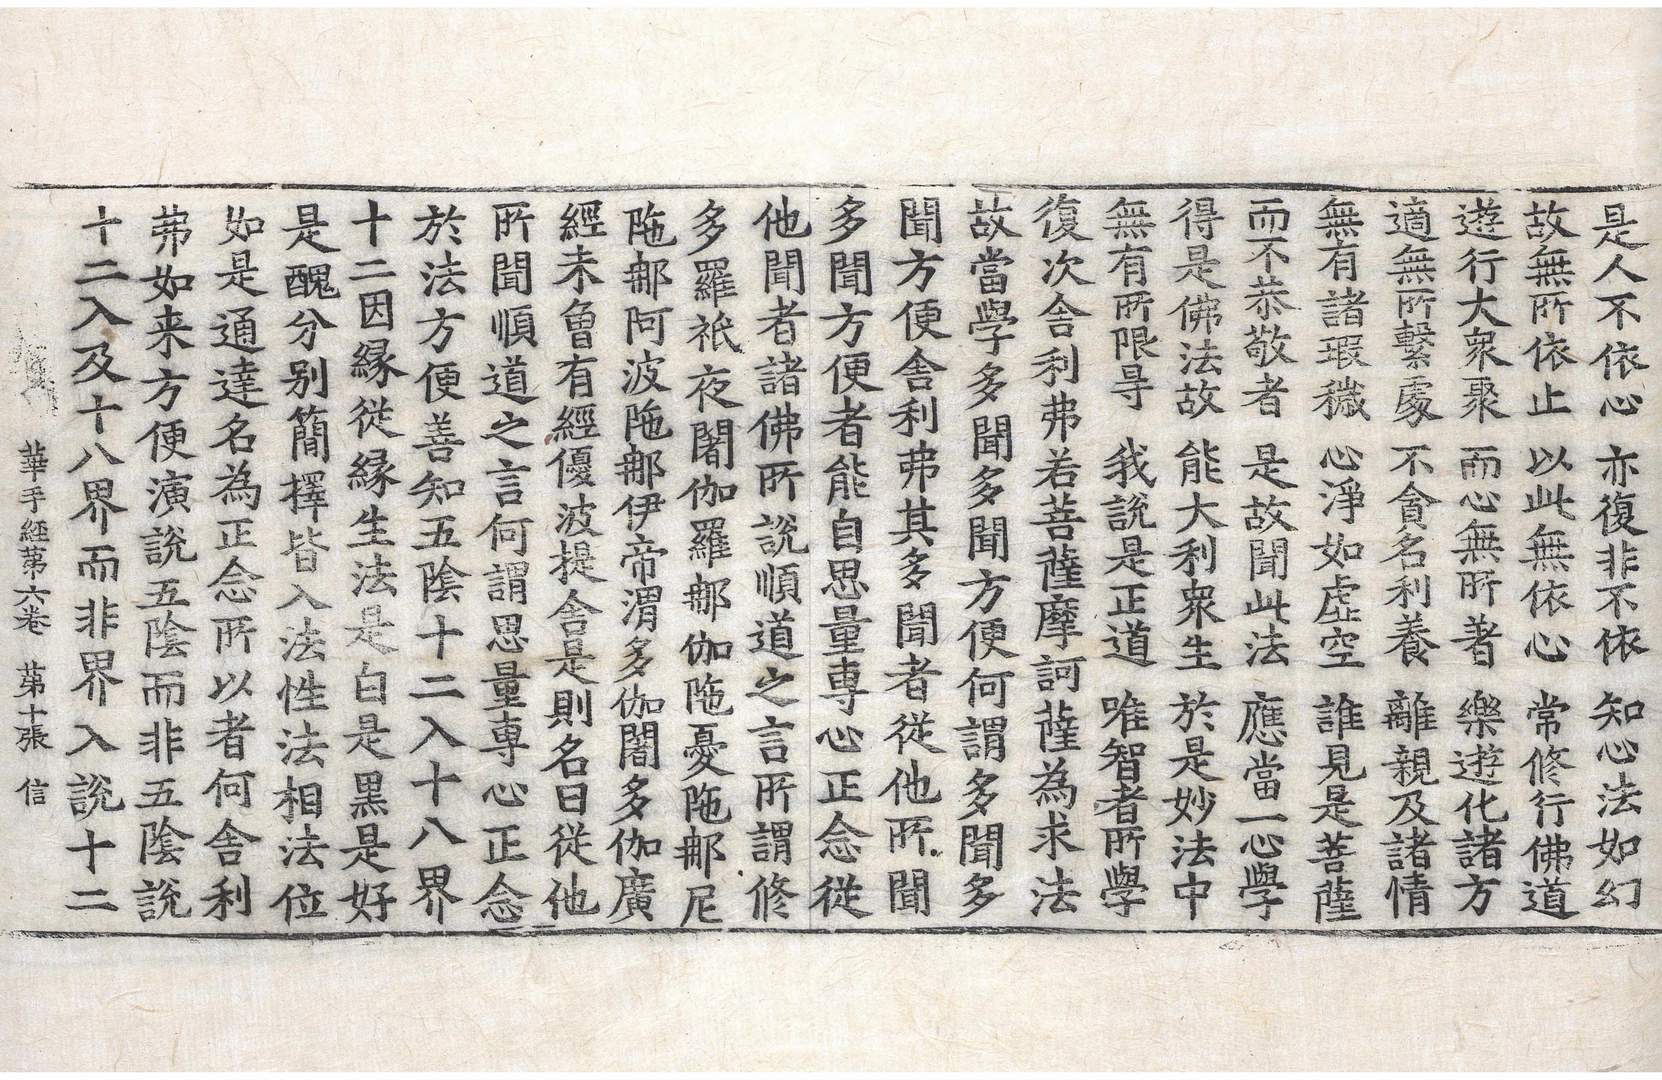 是人不依心　亦復非不依　知心法如幻
故無所依止　以此無依心　常修行佛道
遊行大衆聚　而心無所著　樂遊化諸方
適無所繫處　不貪名利養　離親及諸情
無有諸瑕穢　心淨如虛空　誰見是菩薩
而不恭敬者　是故聞此法　應當一心學
得是佛法故　能大利衆生　於是妙法中
無有所限㝵　我說是正道　唯智者所學
復次舍利弗若菩薩摩訶薩為求法
故當學多聞多聞方便何謂多聞多
聞方便舍利弗其多聞者從他所聞
多聞方便者能自思量專心正念從
他聞者諸佛所說順道之言所謂修
多羅祇夜闍伽羅那伽陁憂陁那尼
陁那阿波陁那伊帝渭多伽闍多伽廣
經未曾有經優波提舍是則名曰從他
所聞順道之言何謂思量專心正念
於法方便善知五陰十二入十八界
十二因緣從緣生法是白是黑是好
是醜分別簡擇皆入法性法相法位
如是通達名為正念所以者何舍利
弗如来方便演說五陰而非五陰說
十二入及十八界而非界入說十二
華手經第六卷　第十張　信